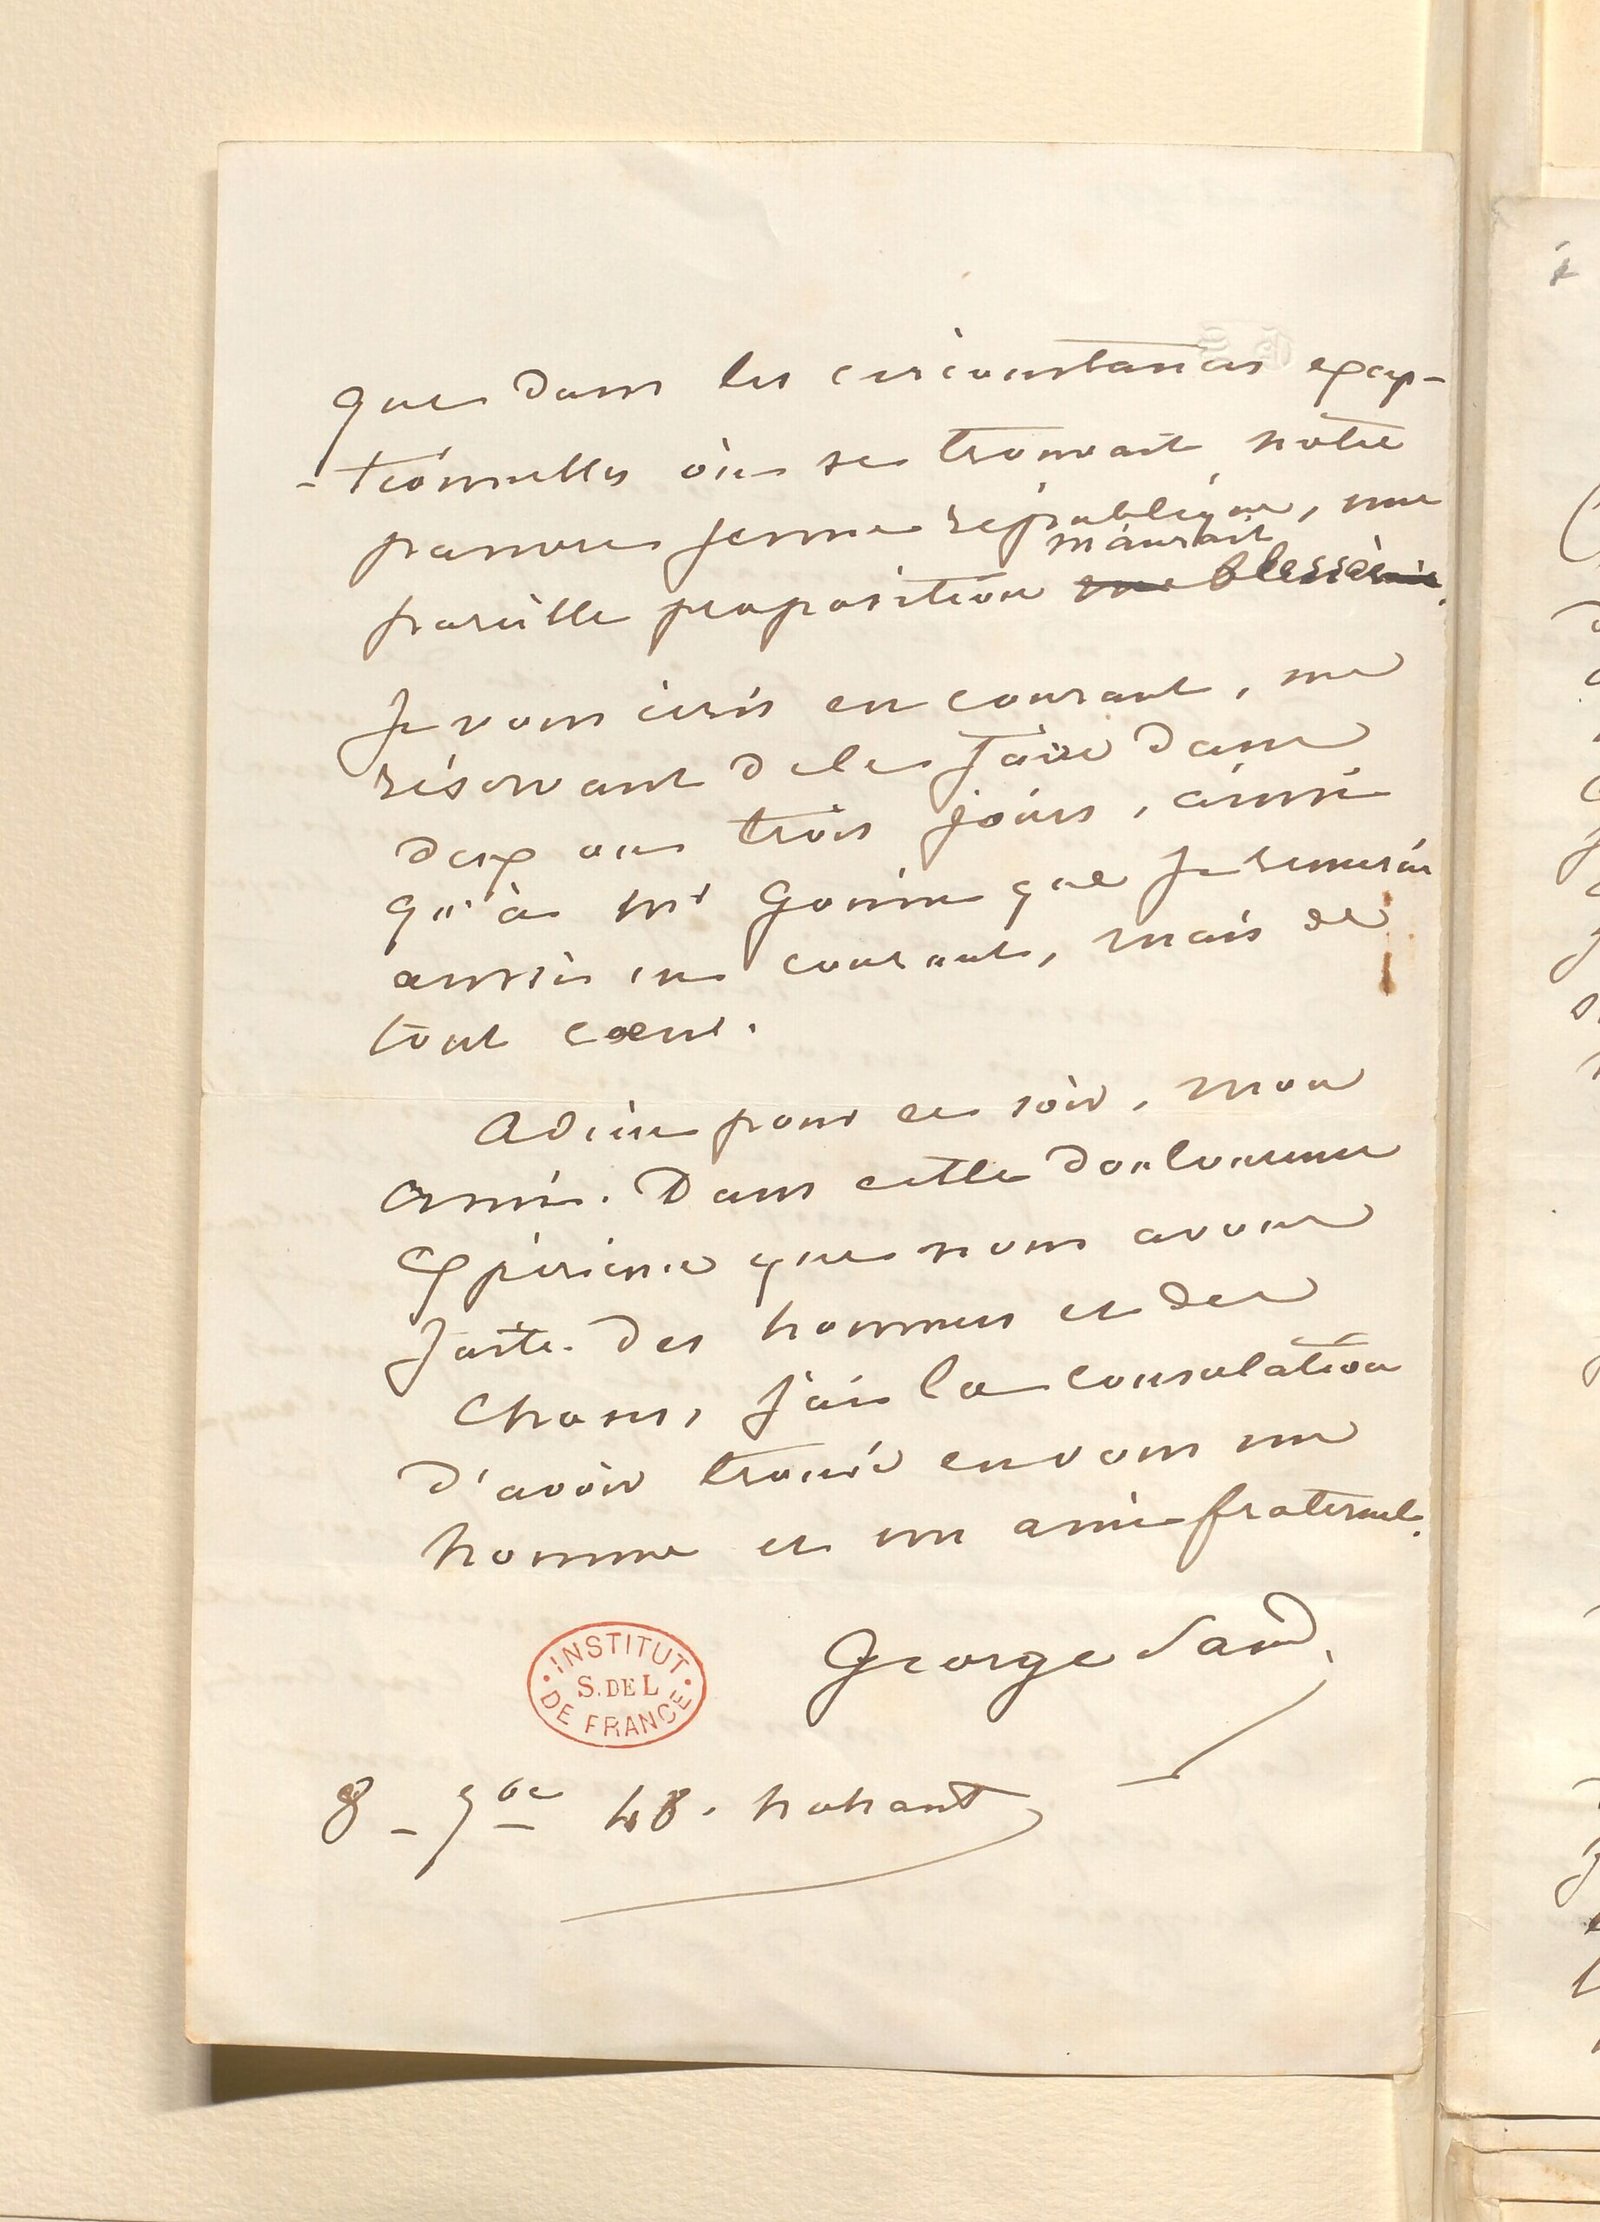 que dans les circonstances excep-
-tionnelles où se trouvait notre
pauvre jeune république, une
m'aurait
pareille proposition me blessée.
Je vous écris en courant, me
réservant de le faire dans
deux ou trois jours, ainsi
qu'à Mr que je remercie
aussi en courant, mais de
tout cœur.
Adieu pour ce soir, mon
ami. Dans cette douloureuse
expérience que nous avons
faite des hommes et des
choses, j'ai la consolation
d'avoir trouvé en vous un
homme et un ami fraternel.
George Sand.
INSTITUT
S. DE L
DE FRANCE
8 - 9bre 48. nohant